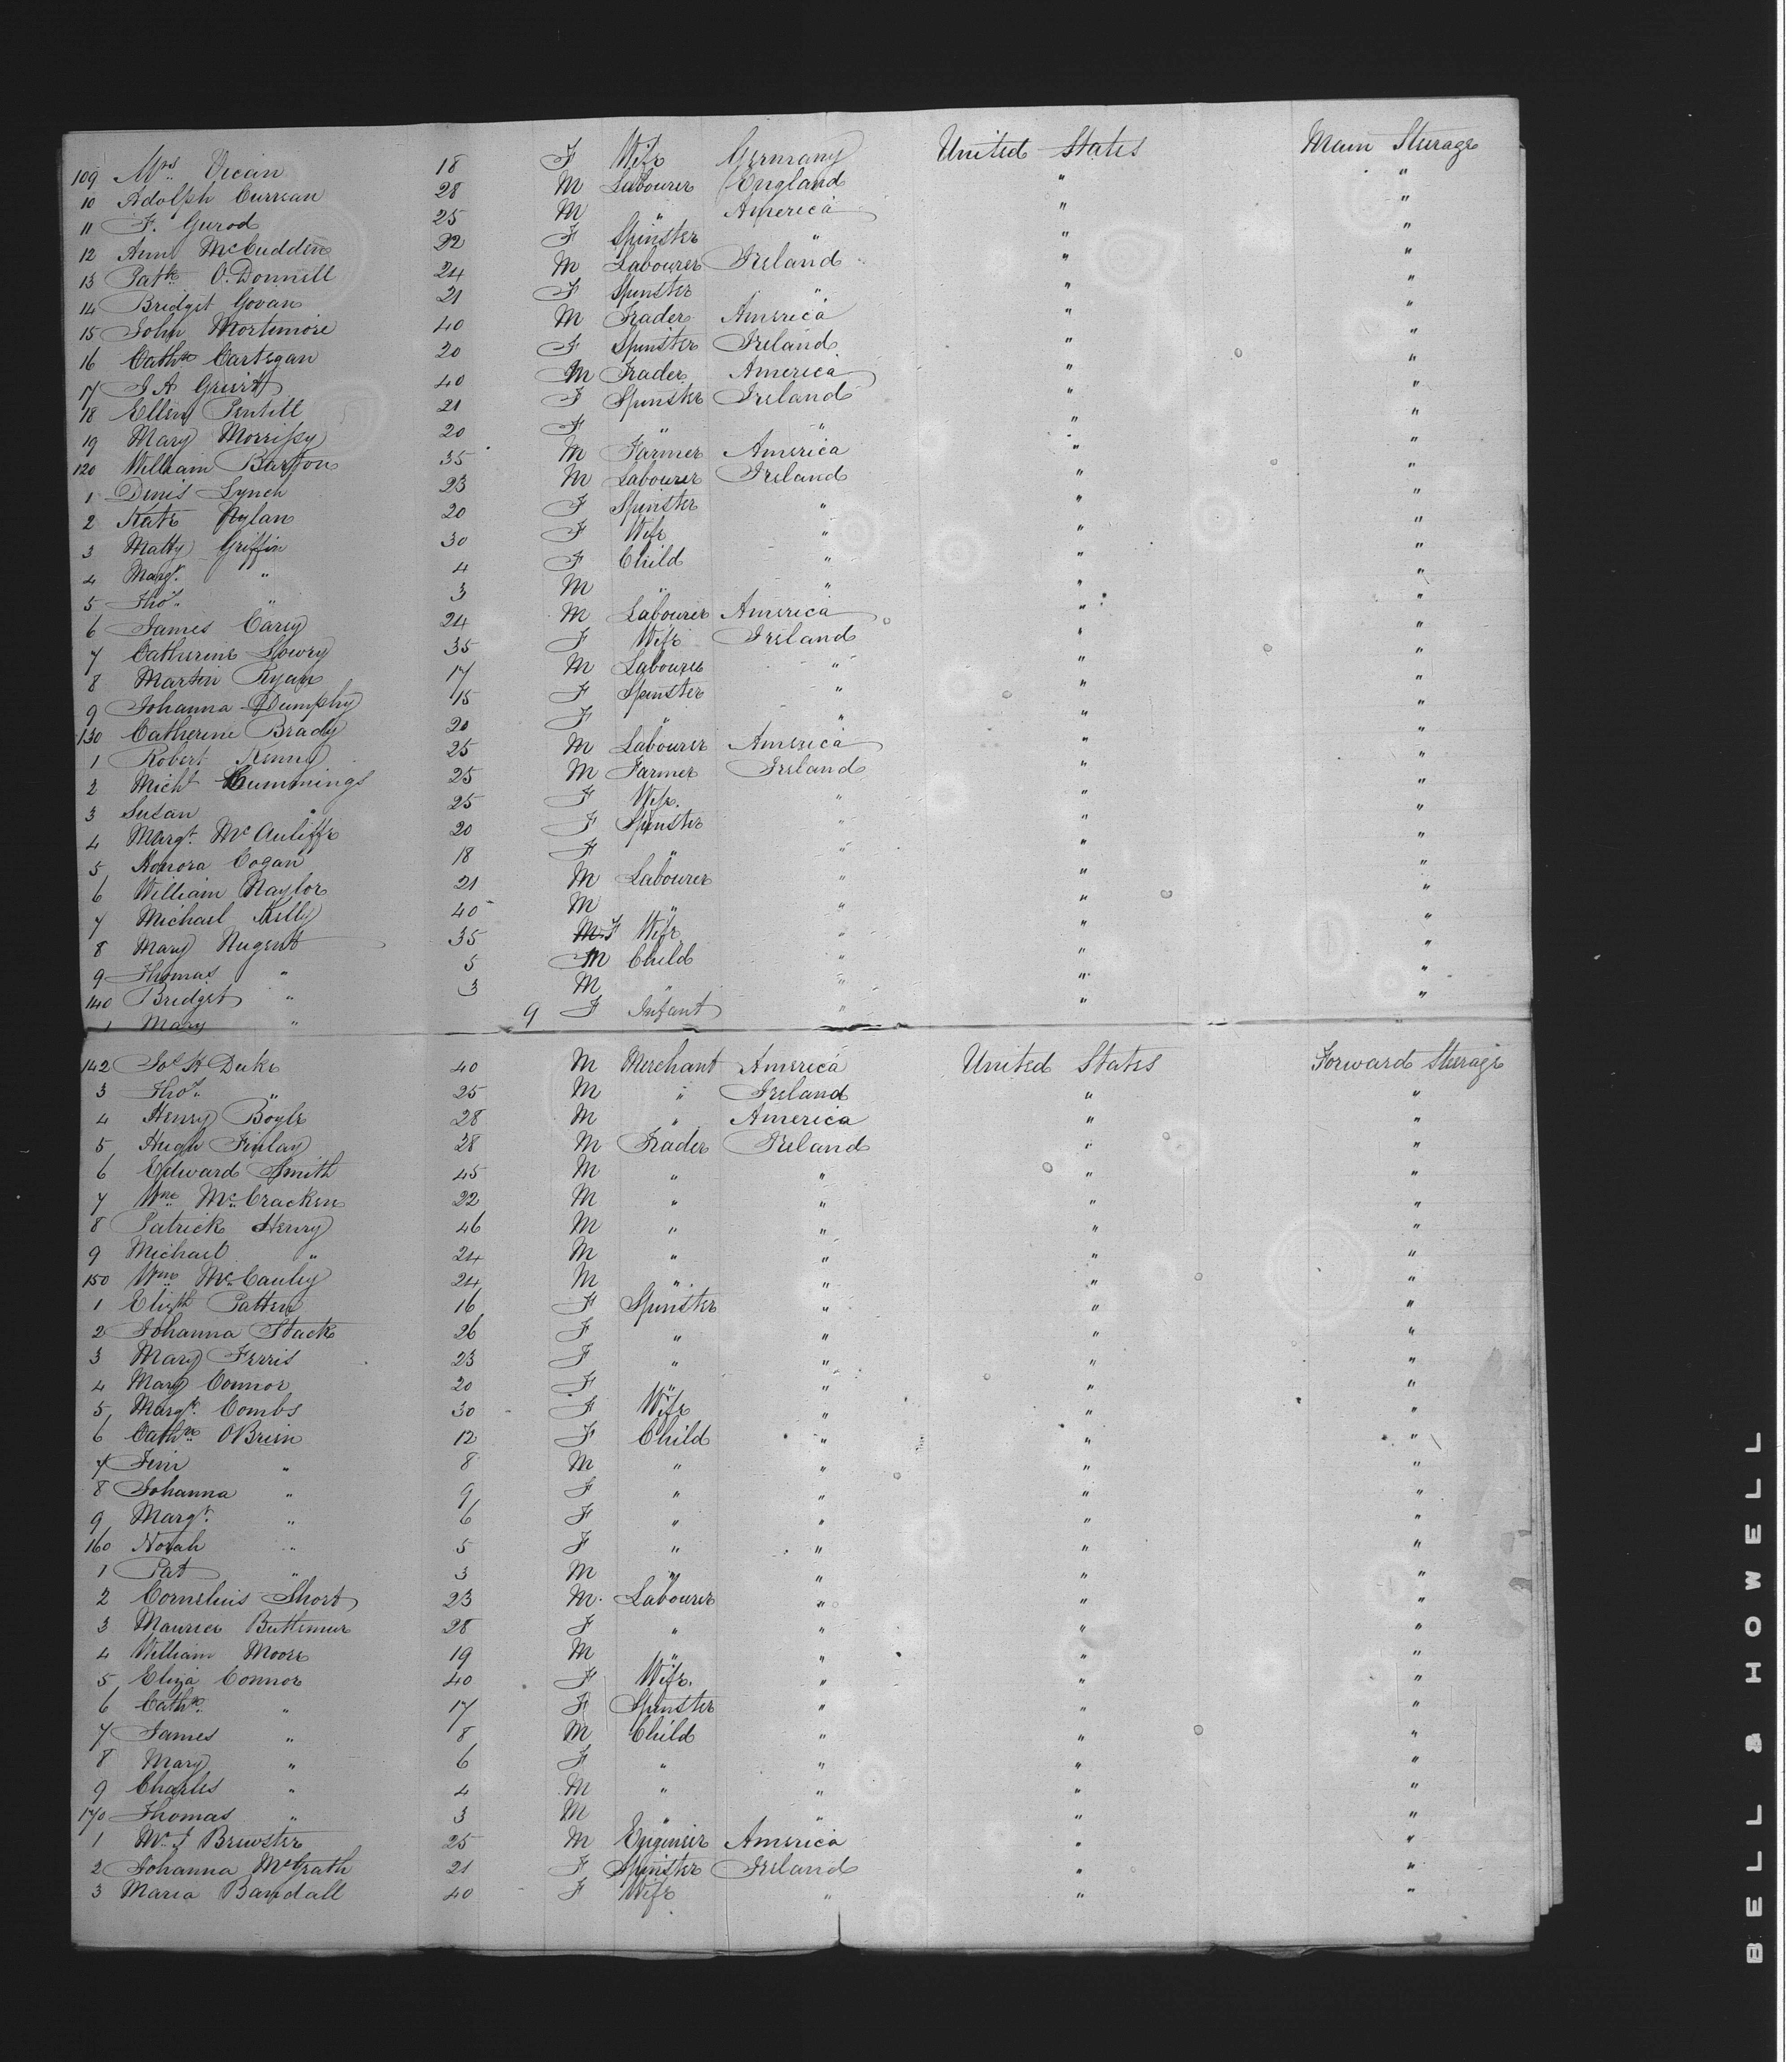 109 Mrs. Vican 18 F Wife Germany United States Main Steerage
10 Adolph Currean 28 M Labourer England " "
11 F. Gurod 25 M " America " "
12 Ann McCudden 22 F Spinster " " "
13 Patk. O. Donnell 24 M Labourer Ireland " "
14 Bridget Govan 21 F Spinster " " "
15 John Mortimore 40 M Trader America " "
16 Cathne Cartegan 20 F Spinster Ireland " "
17 J A 40 M Trader America " "
18 Ellen Pentill 21 F Spinster Ireland " "
19 Mary Morrissy 20 F " " " "
120 William Barton 35 M Farmer America " "
1 Denis Lynch 23 M Labourer Ireland " "
2 Kate Nylan 20 F Spinster " " "
3 Matty Griffin 30 F Wife " " "
4 Margt. " 4 F Child " " "
5 Thos. " 3 M " " " "
6 James Carey 24 M Labourer America " "
7 Catherine Lowry 35 F Wife Ireland " "
8 Martin Ryan 17 M Labourer " " "
9 Johanna Dumphy 15 F Spinster " " "
130 Catherine Brady 20 F " " " "
1 Robert Kenny 25 M Labourer America " "
2 Michl Cummings 25 M Farmer Ireland " "
3 Susan " 25 F Wife. " " "
4 Margt. McAuliffe 20 F Spinster " " "
5 Honora Cogan 18 F " " " "
6 William Naylor 21 M Labourer " " "
7 Michael Kelly 40 M " " " "
8 Mary Nugent 35 F Wife " " "
9 Thomas " 5 M Child " " "
140 Bridget " 3 M " " " "
1 Mary " 9 F Infant " " "
142 Jos H Duke 40 M Merchant America United States Forward Steerage
3 Thos. " 25 M " Ireland " "
4 Henry Boyle 28 M " America " "
5 Hugh Finlay 28 M Trader Ireland " "
6 Edward Smith 45 M " " " "
7 Wm McCracken 22 M " " " "
8 Patrick Henry 46 M " " " "
9 Michael " 24 M " " " "
150 Wm McCauley 24 M " " " "
1 Elizth Patten 16 F Spinster " " "
2 Johanna Stack 26 F " " " "
3 Mary Ferris 23 F " " " "
4 Mary Connor 20 F " " " "
5 Margt. Combs 30 F Wife " " "
6 Cathne OBrien 12 F Child " " "
7 Jim " 8 M " " " "
8 Johanna " 9 F " " " "
9 Margt. " 6 F " " " "
160 Norah " 5 F " " " "
1 Pat " 3 M " " " "
2 Cornelius Short 23 M. Labourer " " "
3 Maurice Buttemer 28 F " " " "
4 William Moore 19 M " " " "
5 Eliza Connor 40 F Wife. " " "
6 Cathne. " 17 F Spinster " " "
7 James " 8 M Child " " "
8 Mary " 6 F " " " "
9 Charles " 4 M " " " "
170 Thomas " 3 M " " " "
1 Mr J Brewster 25 M Engineer America " "
2 Johanna McGrath 21 F Spinster Ireland " "
3 Maria Bandall 40 F Wife " " "
BELL & HOWELL